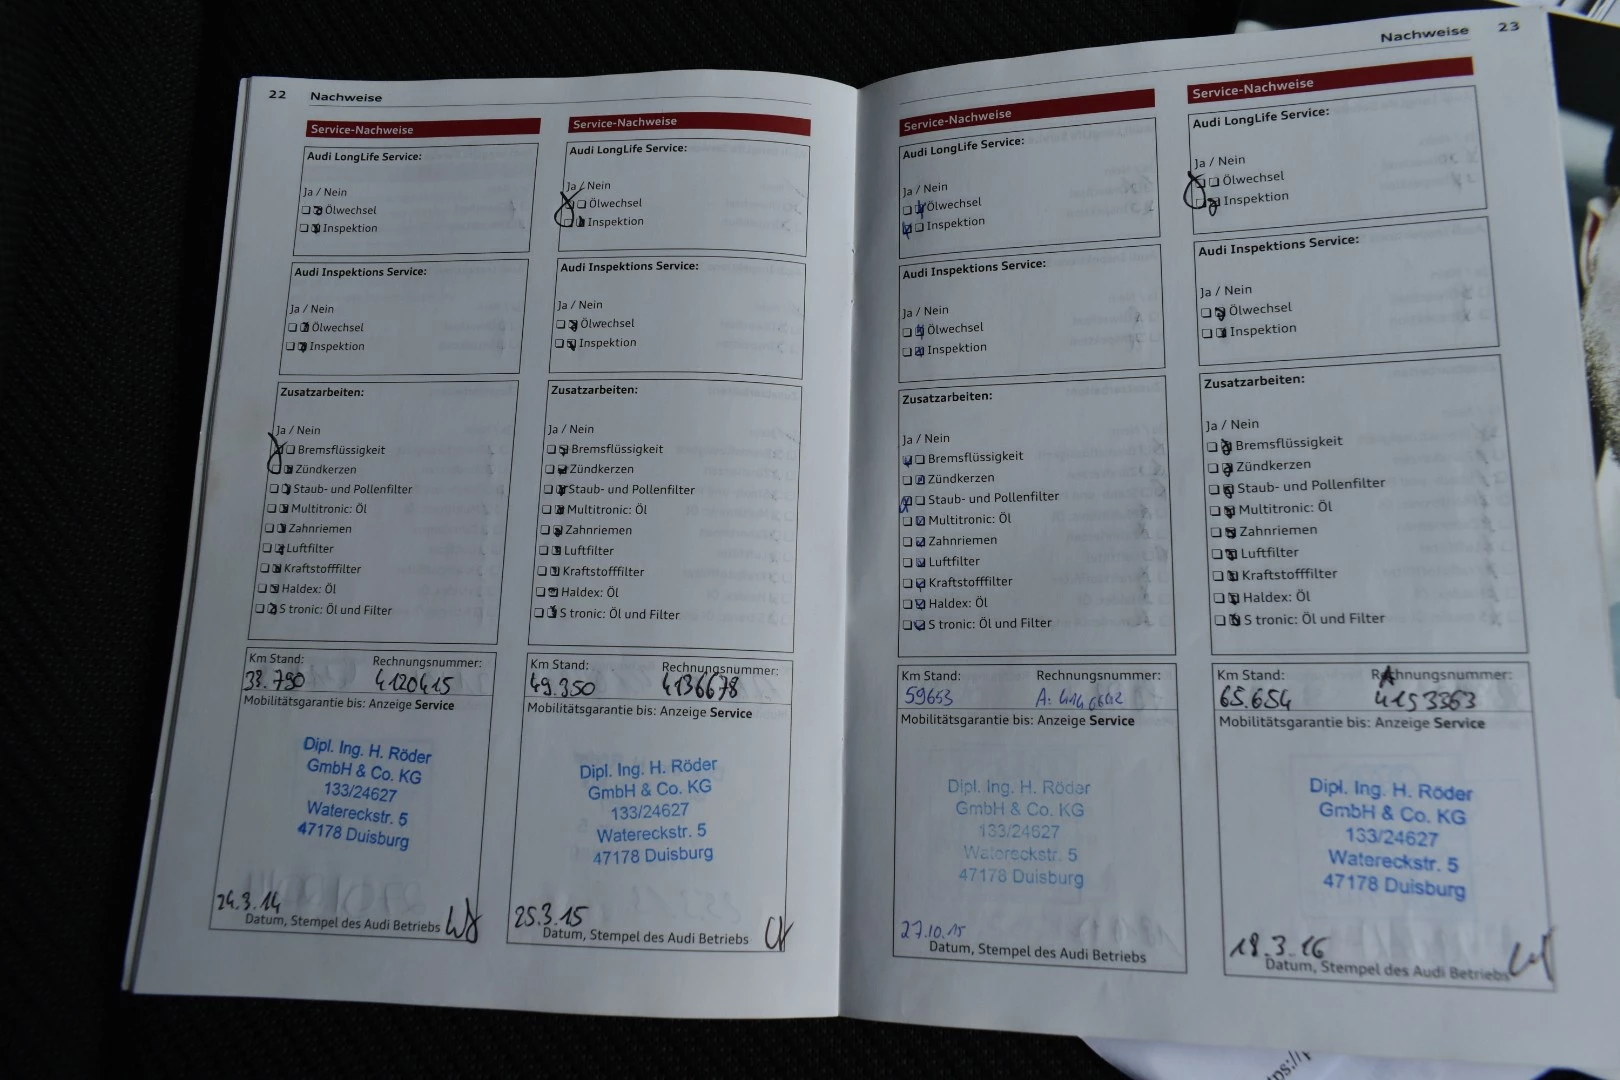 22 Nachweise
Service-Nachweise
Audi LongLife Service:
Ja / Nein
Ölwechsel
Inspektion
Audi Inspektions Service:
Ja / Nein
Ölwechsel
Inspektion
Zusatzarbeiten:
Ja / Nein
Bremsflüssigkeit
Zündkerzen
Staub- und Pollenfilter
Multitronic: Öl
Zahnriemen
Luftfilter
Kraftstofffilter
Haldex: Öl
S tronic: Öl und Filter
Km Stand: Rechnungsnummer:
38.790 4120415
Mobilitätsgarantie bis: Anzeige Service
Dipl. Ing. H. Röder
GmbH & Co. KG
133/24627
Watereckstr. 5
47178 Duisburg
24.3.14
Datum, Stempel des Audi Betriebs
Service-Nachweise
Audi LongLife Service:
Ja / Nein
Ölwechsel
Inspektion
Audi Inspektions Service:
Ja / Nein
Ölwechsel
Inspektion
Zusatzarbeiten:
Ja / Nein
Bremsflüssigkeit
Zündkerzen
Staub- und Pollenfilter
Multitronic: Öl
Zahnriemen
Luftfilter
Kraftstofffilter
Haldex: Öl
S tronic: Öl und Filter
Km Stand: Rechnungsnummer:
49.350 4136678
Mobilitätsgarantie bis: Anzeige Service
Dipl. Ing. H. Röder
GmbH & Co. KG
133/24627
Watereckstr. 5
47178 Duisburg
25.3.15
Datum, Stempel des Audi Betriebs
Nachweise 23
Service-Nachweise
Audi LongLife Service:
Ja / Nein
Ölwechsel
Inspektion
Audi Inspektions Service:
Ja / Nein
Ölwechsel
Inspektion
Zusatzarbeiten:
Ja / Nein
Bremsflüssigkeit
Zündkerzen
Staub- und Pollenfilter
Multitronic: Öl
Zahnriemen
Luftfilter
Kraftstofffilter
Haldex: Öl
S tronic: Öl und Filter
Km Stand: Rechnungsnummer:
59653 A:
Mobilitätsgarantie bis: Anzeige Service
Dipl. Ing. H. Röder
GmbH & Co. KG
133/24627
Watereckstr. 5
47178 Duisburg
27.10.15
Datum, Stempel des Audi Betriebs
Service-Nachweise
Audi LongLife Service:
Ja / Nein
Ölwechsel
Inspektion
Audi Inspektions Service:
Ja / Nein
Ölwechsel
Inspektion
Zusatzarbeiten:
Ja / Nein
Bremsflüssigkeit
Zündkerzen
Staub- und Pollenfilter
Multitronic: Öl
Zahnriemen
Luftfilter
Kraftstofffilter
Haldex: Öl
S tronic: Öl und Filter
Km Stand: Rechnungsnummer:
65.654 4153363
Mobilitätsgarantie bis: Anzeige Service
Dipl. Ing. H. Röder
GmbH & Co. KG
133/24627
Watereckstr. 5
47178 Duisburg
18.3.16
Datum, Stempel des Audi Betriebs